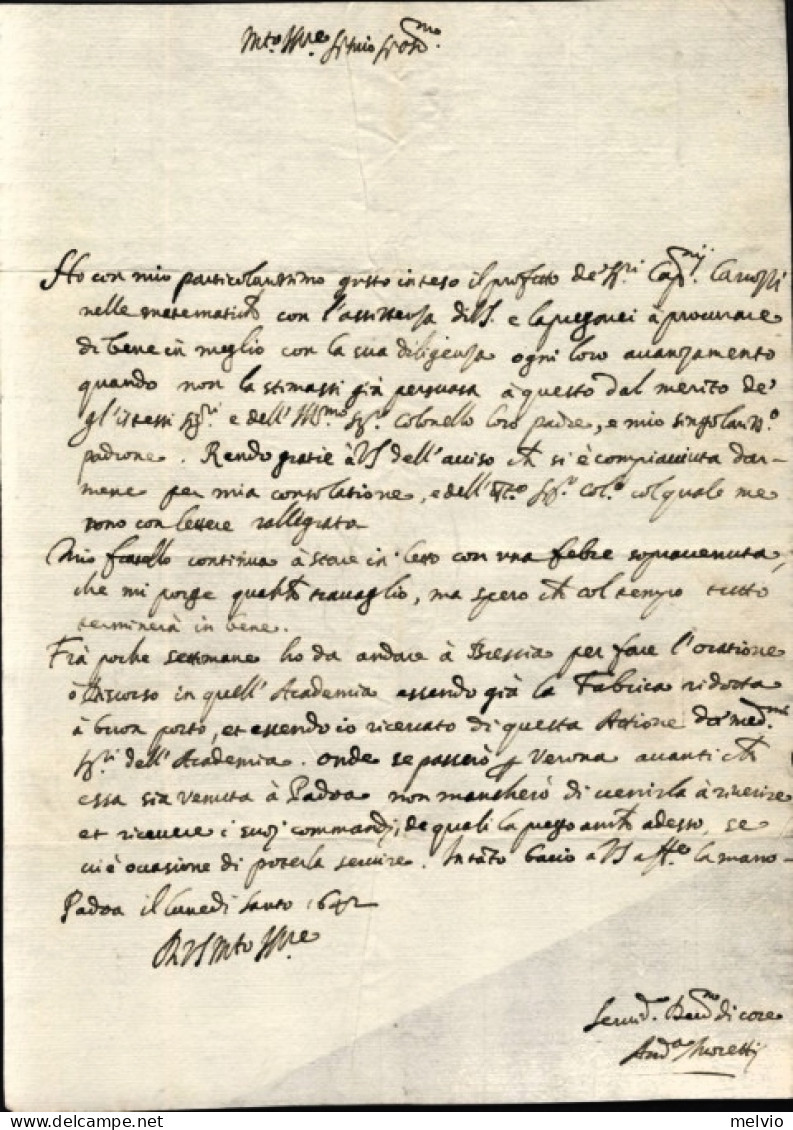 Mto Illre
Ho con mio particolarissimo gusto inteso il profitto de' ssri Capnij Carozzi
nelle matematich con l'assistenza di VS. e la pregarei à procurare
di bene in meglio con la sua diligenza ogni loro avanzamento
quando non la stimassi già persuasa à questo dal merito de'
gl'istessi ssri. e dell'Illmo. Sr. Colonello loro padre, e mio singolariss.o
padrone. Rendo gratie à VS dell'aviso ch si è compiaciuta dar-
mene per mia consolatione, e dell' Sr. Col.o col quale me
sono con lettere rallegrato
Mio fratello continua à stare in letto con una febre sopravenuta,
che mi porge travaglio, ma spero ch col tempo tutto
terminerà in bene.
Frà poche settimane ho da andare à Bressia per fare l'oratione
ò discorso in quell'Academia essendo già la Fabrica ridotta
à buon porto, et essendo io ricercato di questa Attione da' med.mi
ssri dell'Academia. onde se passerò p Verona avanti ch
essa sia venuta à Padoa non mancherò di venirla à riverire
et ricevere i suoi commandi, de quali la prego anch adesso, se
vi è occasione di poterla servire. Intato bacio a VS affe la mano-
Padoa il lunedì santo 1642
Di VS Mto Illre
Servid. di core
And.a Moretti
melvio